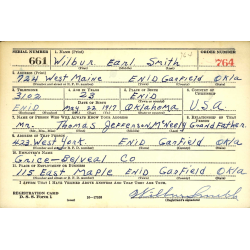 SERIAL NUMBER 1. NAME (Print) ORDER NUMBER
661 Wilbur Earl Smith 764
(First) (Middle) (Last)
2. ADDRESS (Print)
724 West Maine ENID Garfield Okla
3. TELEPHONE 4. AGE IN YEARS 5. PLACE OF BIRTH 6. COUNTRY OF CITIZENSHIP
3102 23 ENID
DATE OF BIRTH
ENID May 22 1917 Oklahoma U.S.A.
7. NAME OF PERSON WHO WILL ALWAYS KNOW YOUR ADDRESS
Mr. Thomas Jefferson McNeely Grand Father
423 West York. ENID Garfield Okla
9. EMPLOYER'S NAME
Grice-Belveal Co
10. PLACE OF EMPLOYMENT OR BUSINESS
115 East Maple ENID Garfield Okla
I AFFIRM THAT I HAVE VERIFIED ABOVE ANSWERS AND THAT THEY ARE TRUE.
REGISTRATION CARD
D. S. S. Form 1 Wilbur Smith
(Registrant's signature)